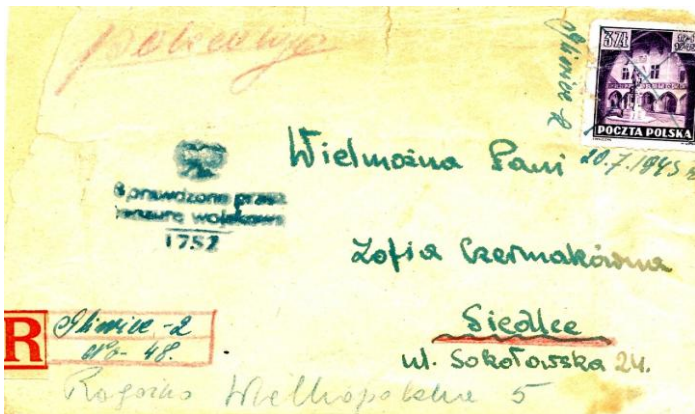 polecony
Gliwice 2
3 Zł
POCZTA POLSKA
20.7.1945 r
Wielmożna Pani
Sprawdzono przez
cenzurę wojskową
1752
Zofia Czermakówna
Siedlce
ul. Sokołowska 24.
R
Gliwice - 2
No - 48.
Rogoźno Wielkopolskie 5